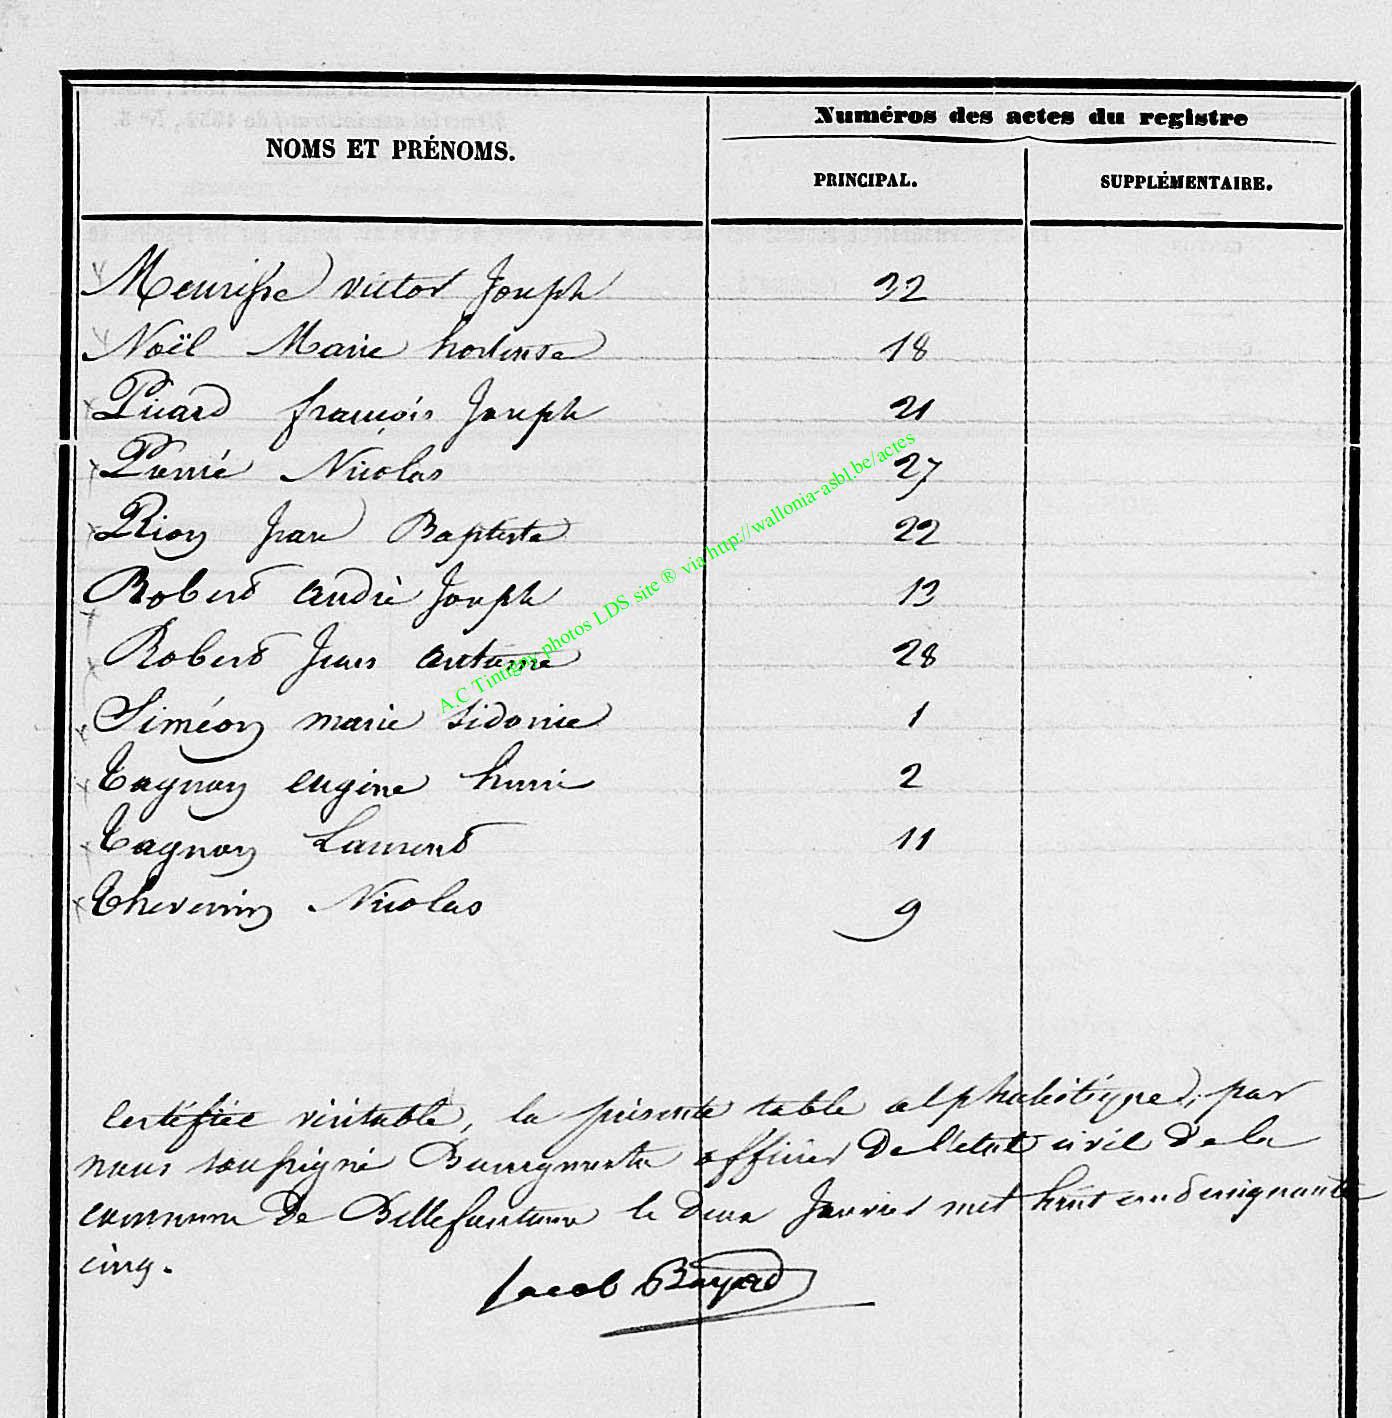 Numéros des actes du registre
NOMS ET PRÉNOMS.
PRINCIPAL. SUPPLÉMENTAIRE.
Meurisse victor Joseph 32
Noël Marie hortense 18
Picard françois Joseph 21
Pierré Nicolas 27
Rion Jean Baptiste 22
Robert andré Joseph 13
Robert Jean antoine 28
Siméon marie sidonie 1
Tagnon eugène henri 2
Tagnon Laurent 11
Thevenin Nicolas 9
A.C Tintigny photos LDS site ® via http://wallonia-asbl.be/actes
certifiée véritable, la présente table alphabétique, par
nous soussigné Bourgmestre officier De l'état civil De la
commune De Bellefontaine le deux Janvier mil huit cent cinquante
cinq.
Jacob Bayard